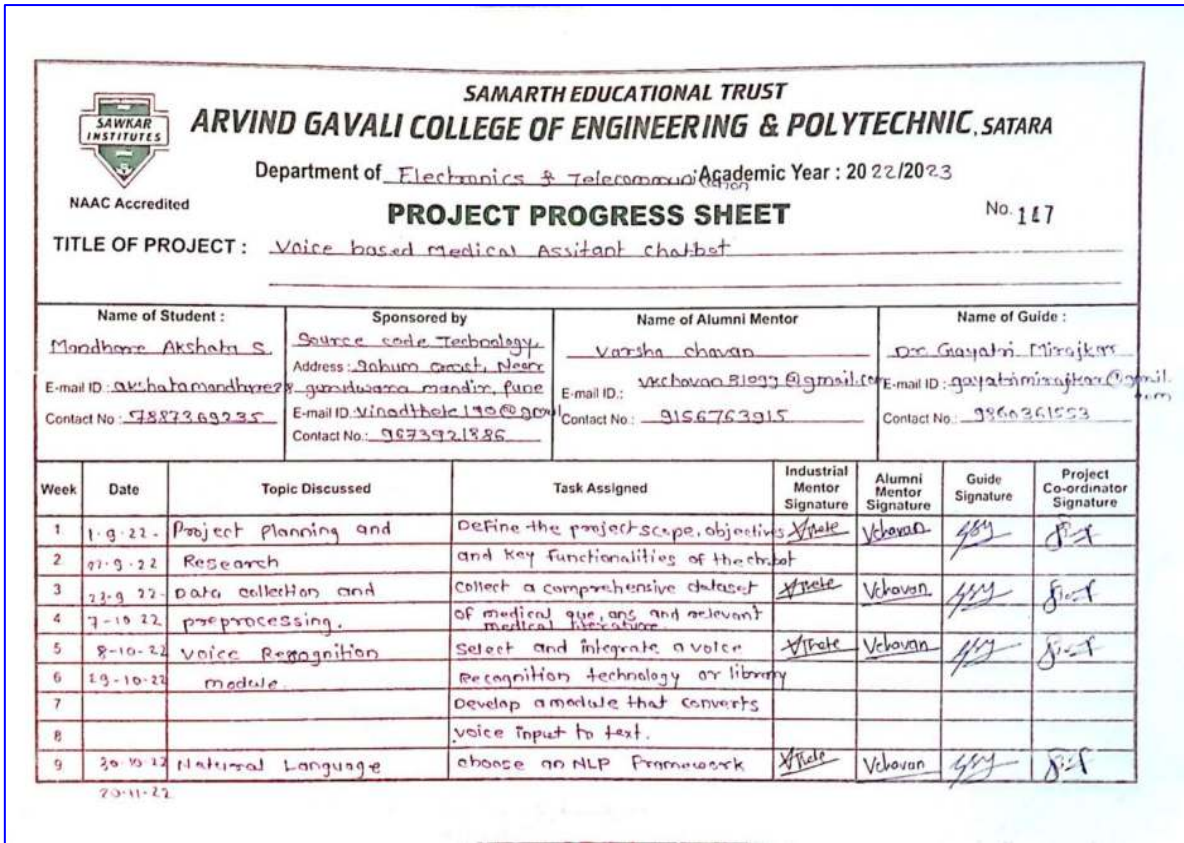 SAMARTH EDUCATIONAL TRUST
SAWKAR INSTITUTES
ARVIND GAVALI COLLEGE OF ENGINEERING & POLYTECHNIC, SATARA
NAAC Accredited
Department of Electronics & Telecommunication Academic Year : 2022/2023
PROJECT PROGRESS SHEET No. 117
TITLE OF PROJECT : Voice based Medical Assitant Chatbot
Name of Student :
Mandhare Akshata S.
E-mail ID :
Contact No : 7887369235
Sponsored by
Source code Technology,
Address : Near
gurudwara mandir, pune
E-mail ID:
Contact No.: 9673921886
Name of Alumni Mentor
Varsha chavan
E-mail ID.:
Contact No : 9156763915
Name of Guide :
Dr. Gayatri Mirajkar
E-mail ID : gayatrimirajkar@gmail.com
Contact No.: 9860361553
Week Date Topic Discussed Task Assigned Industrial Mentor Signature Alumni Mentor Signature Guide Signature Project Co-ordinator Signature
1. 1-9-22 - Project Planning and Define the project scope, objectives VThete Vchavan
2 07-9-22 Research and key functionalities of the chatbot
3 23-9 22- Data collection and collect a comprehensive dataset VThete Vchavan
4 7-10 22 preprocessing. of medical que, ans and relevant medical literature
5 8-10-22 Voice Recognition Select and integrate a voice VThete Vchavan
6 29-10-22 module. Recognition technology or library
7 Develop a module that converts
8 voice input to text.
9 30-10-22 Natural Language choose an NLP Framework VThete Vchavan
20-11-22